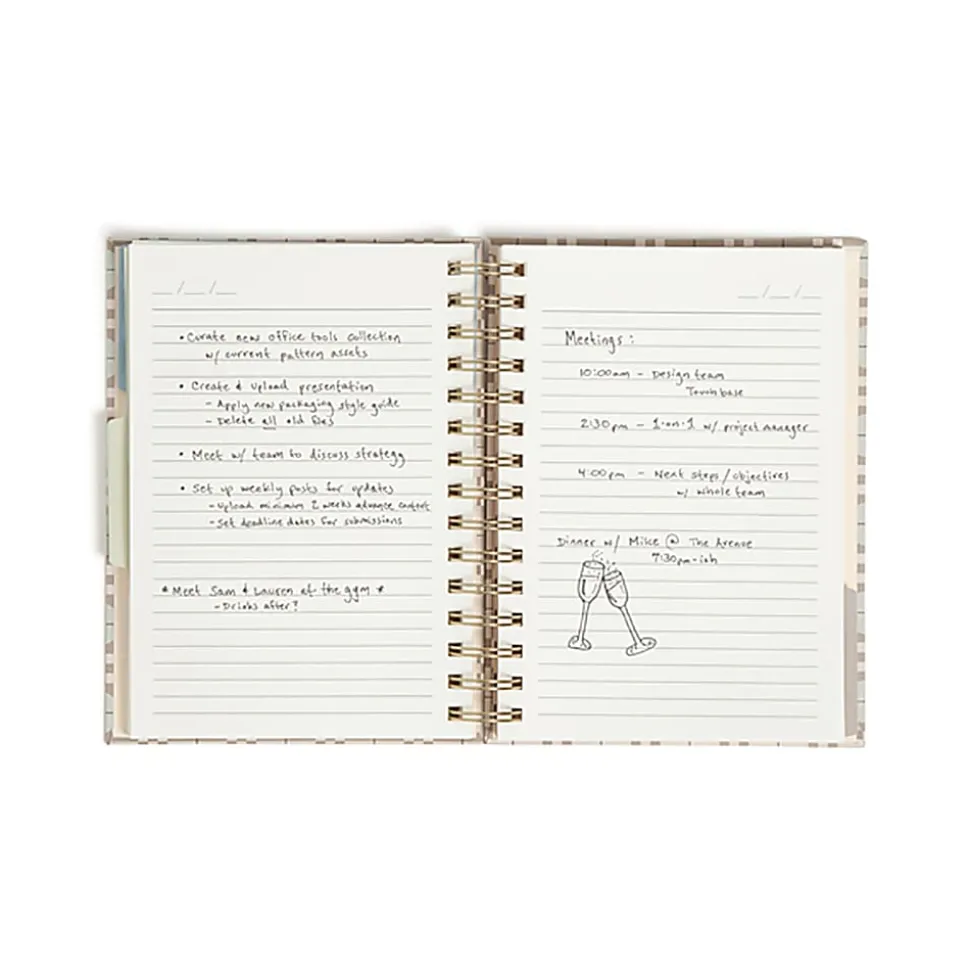 __/__/__
• Curate new office tools collection
w/ current pattern assets
• Create & upload presentation
- Apply new packaging style guide
- Delete all old files
• Meet w/ team to discuss strategy
• Set up weekly posts for updates
- Upload minimum 2 weeks advance content
- Set deadline dates for submissions
* Meet Sam & Lauren at the gym *
- Drinks after?
__/__/__
Meetings:
10:00am - Design team
Touch base
2:30pm - 1-on-1 w/ project manager
4:00pm - Next steps/objectives
w/ whole team
Dinner w/ Mike @ The Avenue
7:30pm-ish